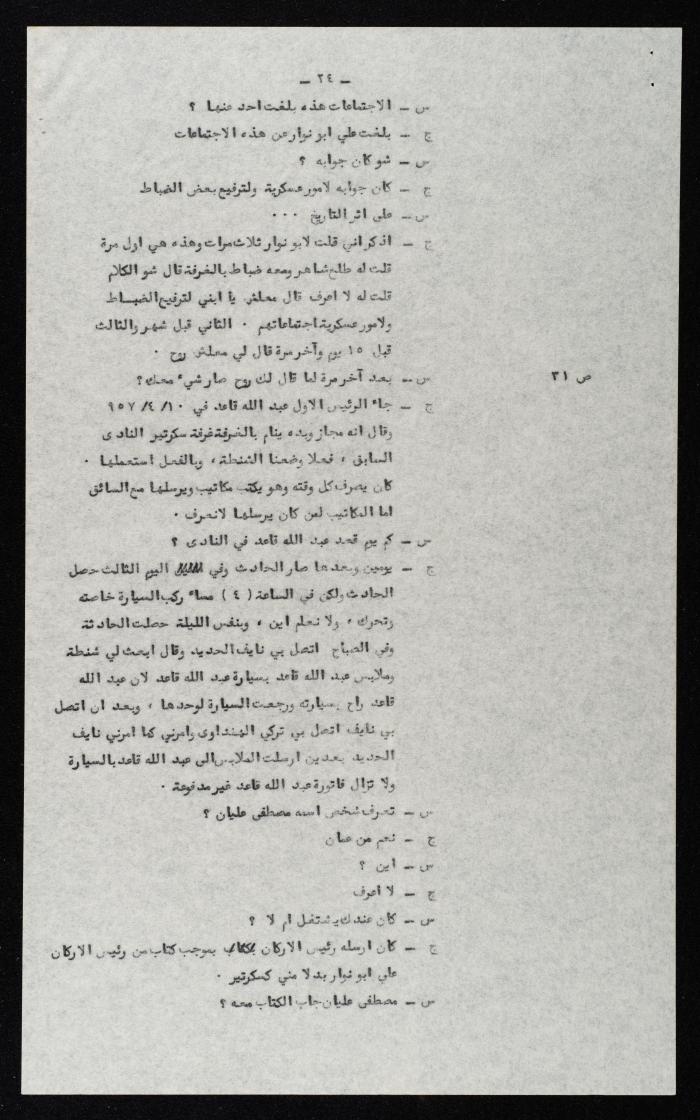 ـ ٢٤ ـ
س ـ الاجتماعات هذه بلغت احد عنها ؟
ج ـ بلغت علي ابو نوار عن هذه الاجتماعات
س ـ شو كان جوابه ؟
ج ـ كان جوابه لامور عسكرية ولترفيع بعض الضباط
س ـ على اثر التاريخ ٠٠٠
ج ـ اذكر اني قلت لابو نوار ثلاث مرات وهذه هي اول مرة
قلت له طلع شاهر ومعه ضباط بالغرفة قال شو الكلام
قلت له لا اعرف قال معلش يا ابني لترفيع الضباط
ولامور عسكرية اجتماعاتهم ٠ الثاني قبل شهر والثالث
قبل ١٥ يوم وآخر مرة قال لي معلش روح ٠
س ـ بعد آخر مرة لما قال لك روح صار شيء معك ؟ ص ٣١
ج ـ جاء الرئيس الاول عبد الله قاعد في ١٠/ ٤/ ٩٥٧
وقال انه مجاز وبده ينام بالغرفة غرفة سكرتير النادى
السابق ، فعلا وضعنا الشنطة ، وبالفعل استعملها ٠
كان يصرف كل وقته وهو يكتب مكاتيب ويرسلها مع السائق
اما المكاتيب لمن كان يرسلها لانعرف ٠
س ـ كم يوم قعد عبد الله قاعد في النادى ؟
ج ـ يومين وبعدها صار الحادث وفي اليوم الثالث حصل
الحادث ولكن في الساعة ( ٤ ) مساء ركب السيارة خاصته
وتحرك ، ولا نعلم اين ، وبنفس الليلة حصلت الحادثة
وفي الصباح اتصل بي نايف الحديد وقال ابعث لي شنطة
وملابس عبد الله قاعد بسيارة عبد الله قاعد لان عبد الله
قاعد راح بسيارته ورجعت السيارة لوحدها ، وبعد ان اتصل
بي نايف اتصل بي تركي الهنداوى وامرني كما امرني نايف
الحديد بعدين ارسلت الملابس الى عبد الله قاعد بالسيارة
ولا تزال فاتورة عبد الله قاعد غير مدفوعة ٠
س ـ تعرف شخص اسمه مصطفى عليان ؟
ج ـ نعم من عمان
س ـ اين ؟
ج ـ لا اعرف
س ـ كان عندك يشتغل ام لا ؟
ج ـ كان ارسله رئيس الاركان بموجب كتاب من رئيس الاركان
علي ابو نوار بدلا مني كسكرتير ٠
س ـ مصطفى عليان جاب الكتاب معه ؟